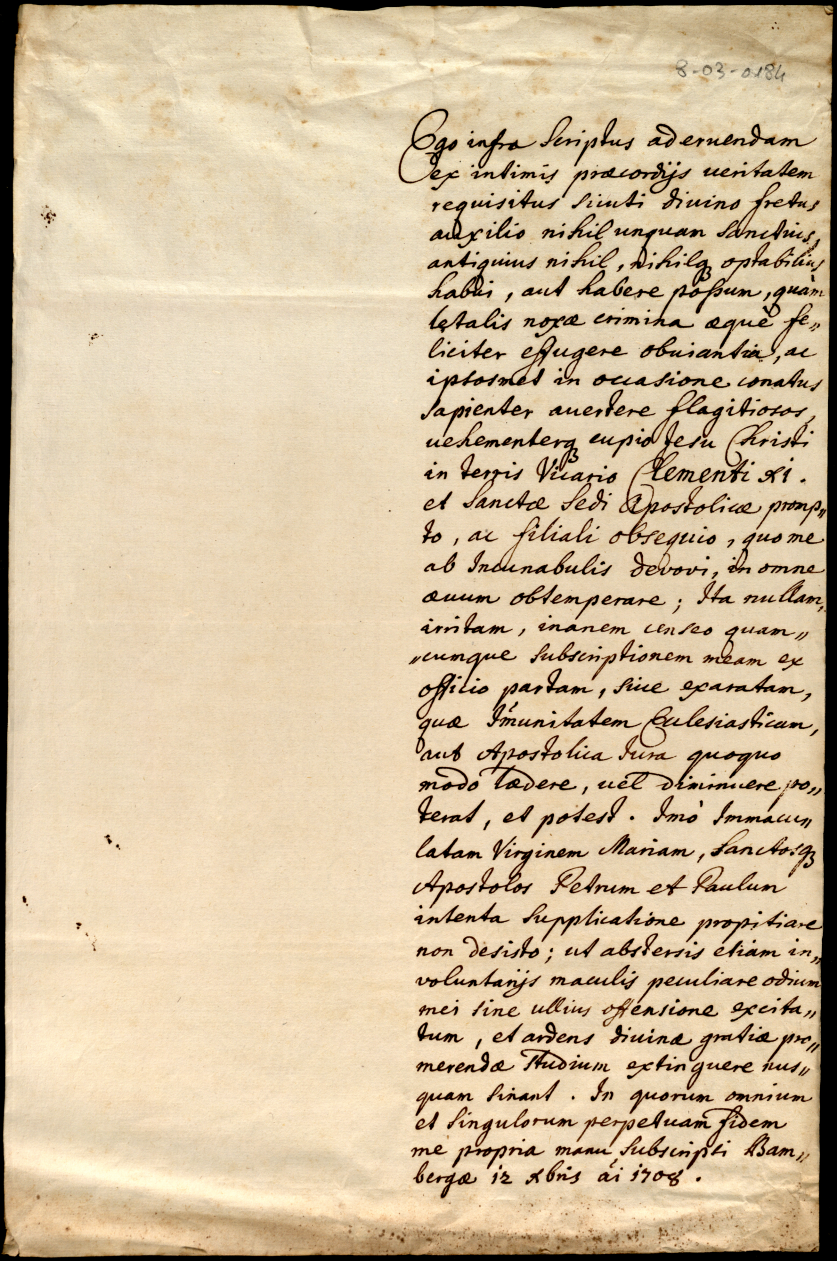 8-03-0184
Ego infra Scriptus ad eruendam
ex intimis præcordijs ueritatem
requisitus sicuti diuino fretus
auxilio nihil unquam Sanctius,
antiquius nihil, nihilqꝫ optabilius
habui, aut habere possum, quàm
lętalis noxæ crimina æquè fe„
liciter effugere obuiantia, ac
ipsosmet in occasione conatus
sapienter auertere flagitiosos,
uehementerqꝫ cupio Jesu Christi
in terris Vicario Clementi XI.
et Sanctæ Sedi Apostolicæ promp„
to, ac filiali obsequio, quo me
ab Incunabulis devovi, in omne
æuum obtemperare; Ita nullam,
irritam, inanem censeo quam„
„cumque subscriptionem meam ex
officio partam, siue exaratam,
quæ Im̄unitatem Ecclesiasticam,
aut Apostolica Iura quoquo
modo lædere, uel diminuere po„
terat, et potest. Imò Immacu„
latam Virginem Mariam, Sanctosqꝫ
Apostolos Petrum et Paulum
intenta Supplicatione propitiare
non desisto; ut abstersis etiam in„
voluntarijs maculis peculiare odium
mei sine ullius offensione excita„
tum, et ardens diuinæ gratiæ pro„
merendæ studium extinguere nus„
quam sinant. In quorum omnium
et singulorum perpetuam fidem
me propria manu subscripsi Bam„
bergæ 12 Xbris ai 1708.